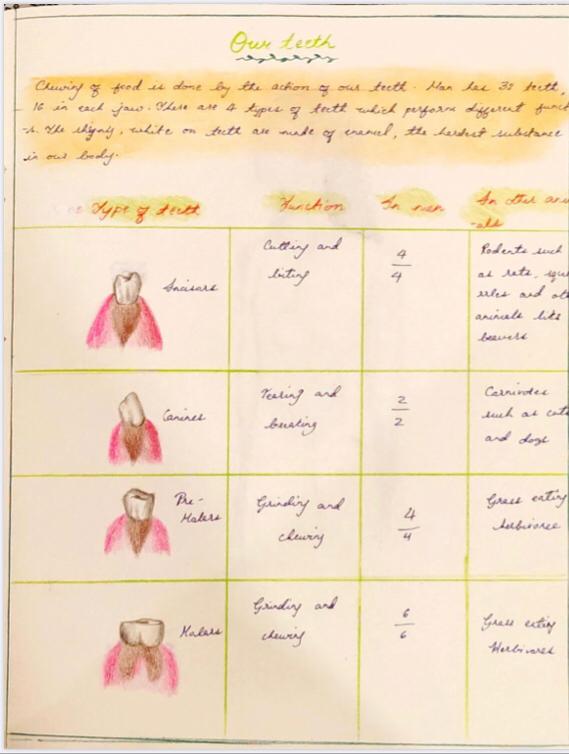 Our teeth
Chewing of food is done by the action of our teeth. Man has 32 teeth,
16 in each jaw. There are 4 types of teeth which perform different funct
-s. The shiny, white on teeth are made of enamel, the hardest substance
in our body.
Type of teeth Function In men In other ani
-als
Incisors Cutting and biting 4/4 Rodents such
as rats, squi
rrles and oth
animals like
beavers
Canines Tearing and 2/2 Carnivores
such as cats
and dogs
Pre-
Molars Grinding and chewing 4/4 Grass eating
herbivores
Molars Grinding and chewing 6/6 Grass eating
Herbivores